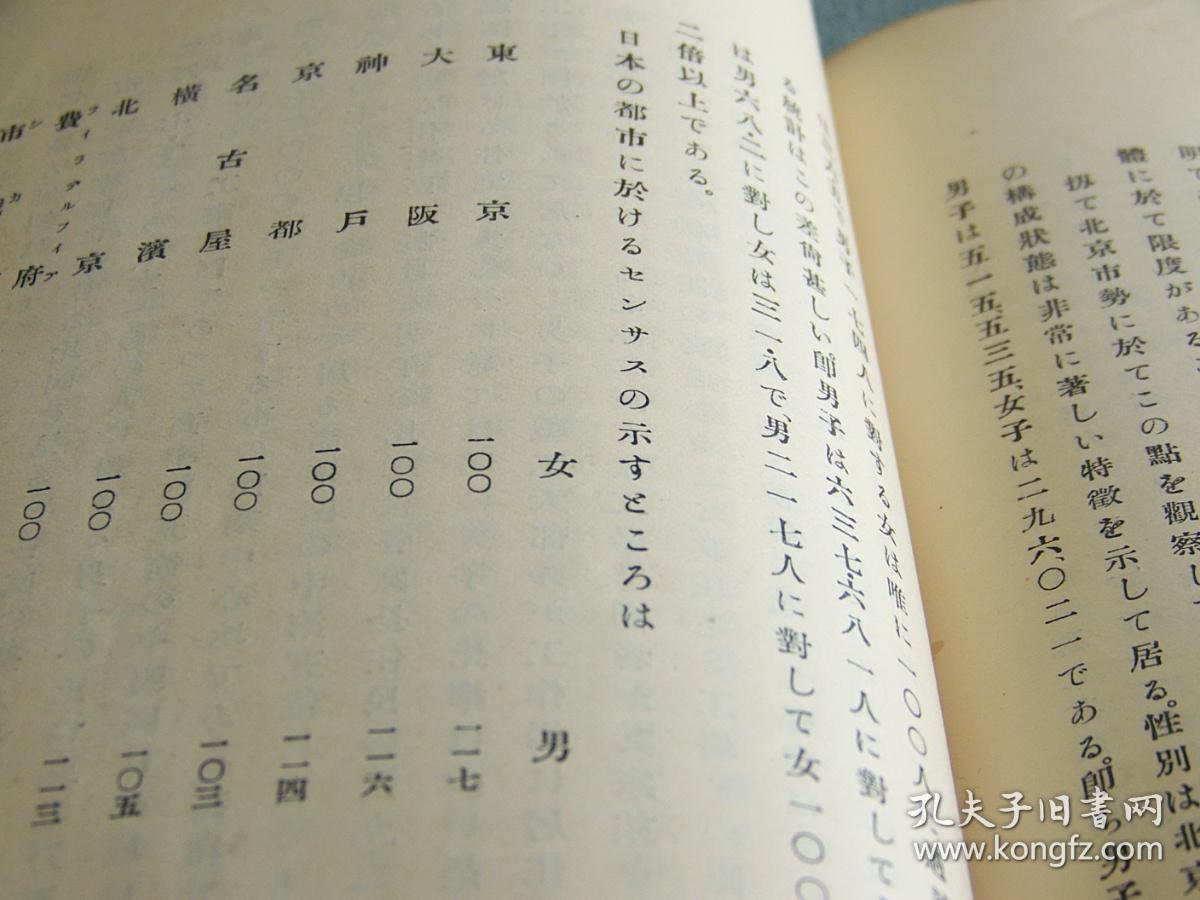 明で
體に於て限度がある
扨て北京市勢に於てこの點を觀察して
の構成狀態は非常に著しい特徵を示して居る。性別は北京
男子は五一五、五三五、女子は二九六、〇二一である。卽ち男子
一七四人に對する女は唯に一〇〇人
る統計はこの差尙甚しい卽男子は六三七六八一人に對して
は男六八・二に對し女は三一・八で、男二一七人に對して女一〇〇
二倍以上である。
日本の都市に於けるセンサスの示すところは
女 男
東京 一〇〇 一一七
大阪 一〇〇 一一六
神戶 一〇〇 一一四
京都 一〇〇 一〇三
名古屋 一〇〇 一〇五
橫濱 一〇〇 一一三
北京 一〇〇
費府 一〇〇
フイラデルフイア
市
孔夫子旧书网
www.kongfz.com